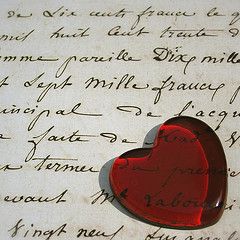 de Six cents francs le q
mis huit cent trente d
omme pareille Dix mille
t Sept mille francs
incipal de l'acqu
faite de
termes du premier
evant Me Labou
Vingt neuf